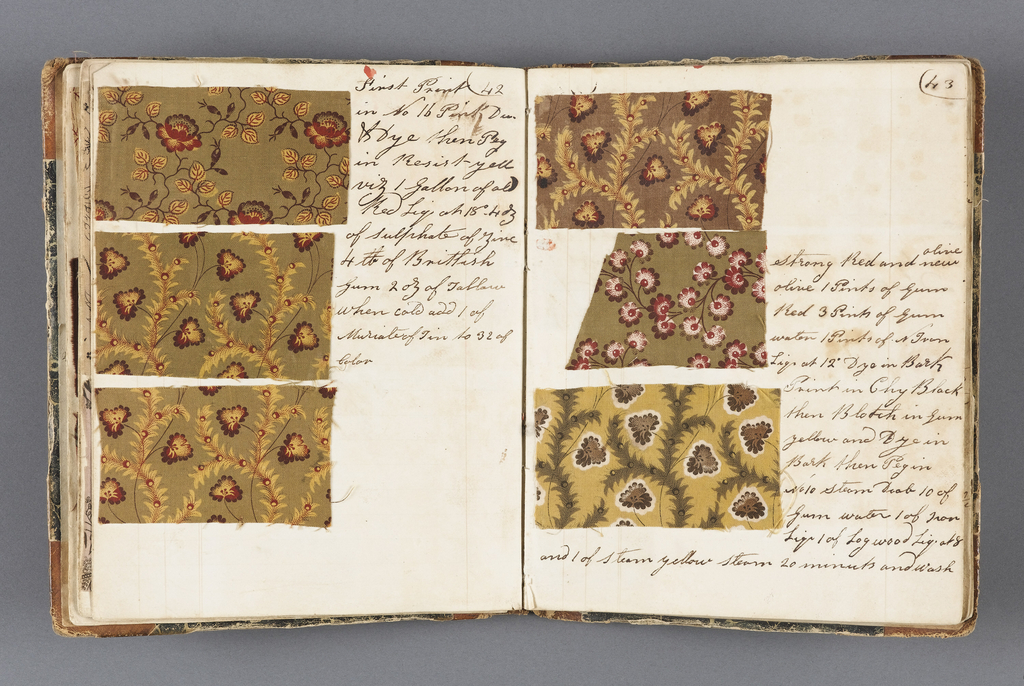 First Print 42
in No 16 Pink
& Dye then Peg
in Resist yell
viz 1 Gallon of
Red Liqr at 18° 4 oz
of Sulphate of Zinc
4 lb of Brittish
Gum 2 oz of Tallow
When Cold add 1 of
Muriate of Tin to 32 of
Color
43
Strong Red and new olive
olive 1 Pints of Gum
Red 3 Pints of Gum
water 1 Pints of N Iron
Liqr at 12° Dye in Bark
Print in Chy Black
then Blotch in Gum
yellow and Dye in
Bark then Peg in
No 10 Steam Drab 10 of
Gum water 1 of Iron
Liqr 1 of Logwood Liqr at 8
and 1 of steam yellow steam 20 minuits and wash